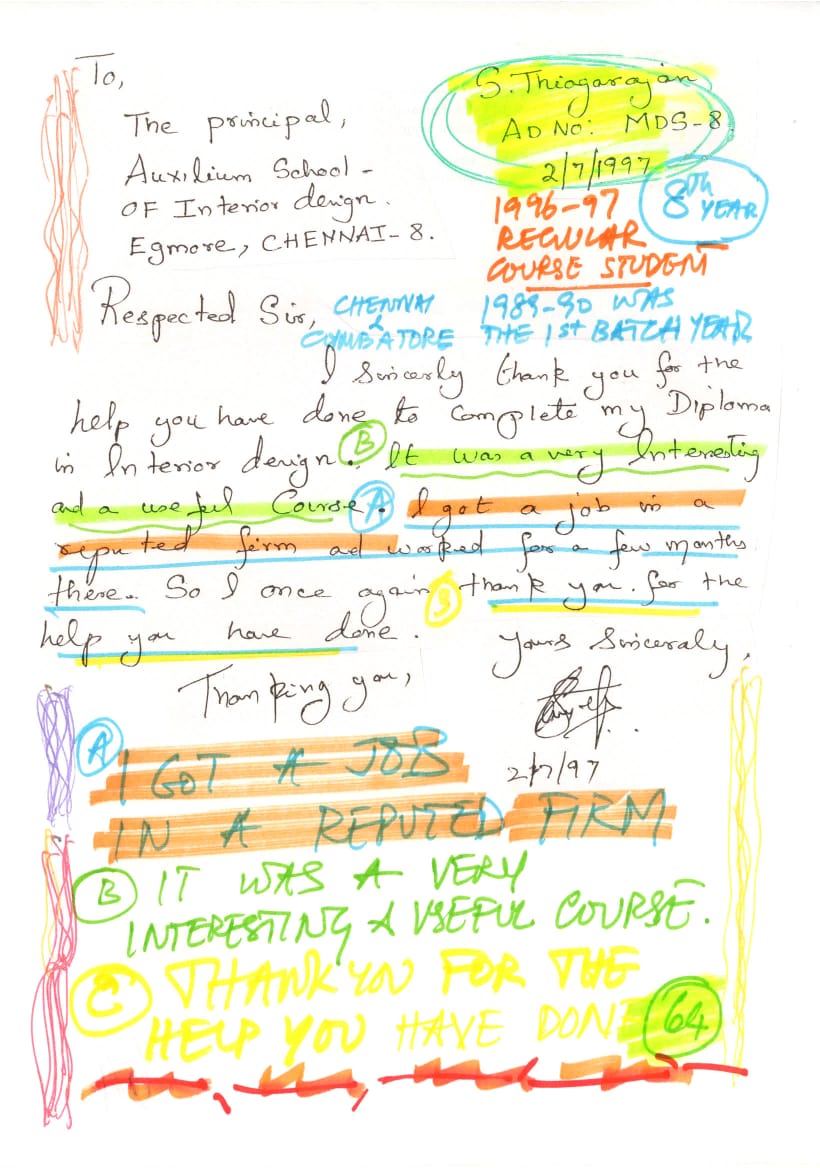 To,
The principal,
Auxilium School -
OF Interior design.
Egmore, CHENNAI - 8.
S. Thiagarajan
AD NO: MDS - 8.
2/7/1997
8TH YEAR
1996-97
REGULAR
COURSE STUDENT
Respected Sir,
CHENNAI
&
COIMBATORE
1989-90 WAS
THE 1st BATCH YEAR
I sincerly thank you for the
help you have done to complete my Diploma
in Interior design. B It was a very Interesting
and a useful Course. A I got a job in a
reputed firm and worked for a few months
there. So I once again thank you for the
help you have done.
Yours Sinceraly,
Thanking you,
2/7/97
A I GOT A JOB
IN A REPUTED FIRM
B IT WAS A VERY
INTERESTING & USEFUL COURSE.
C THANK YOU FOR THE
HELP YOU HAVE DONE
64